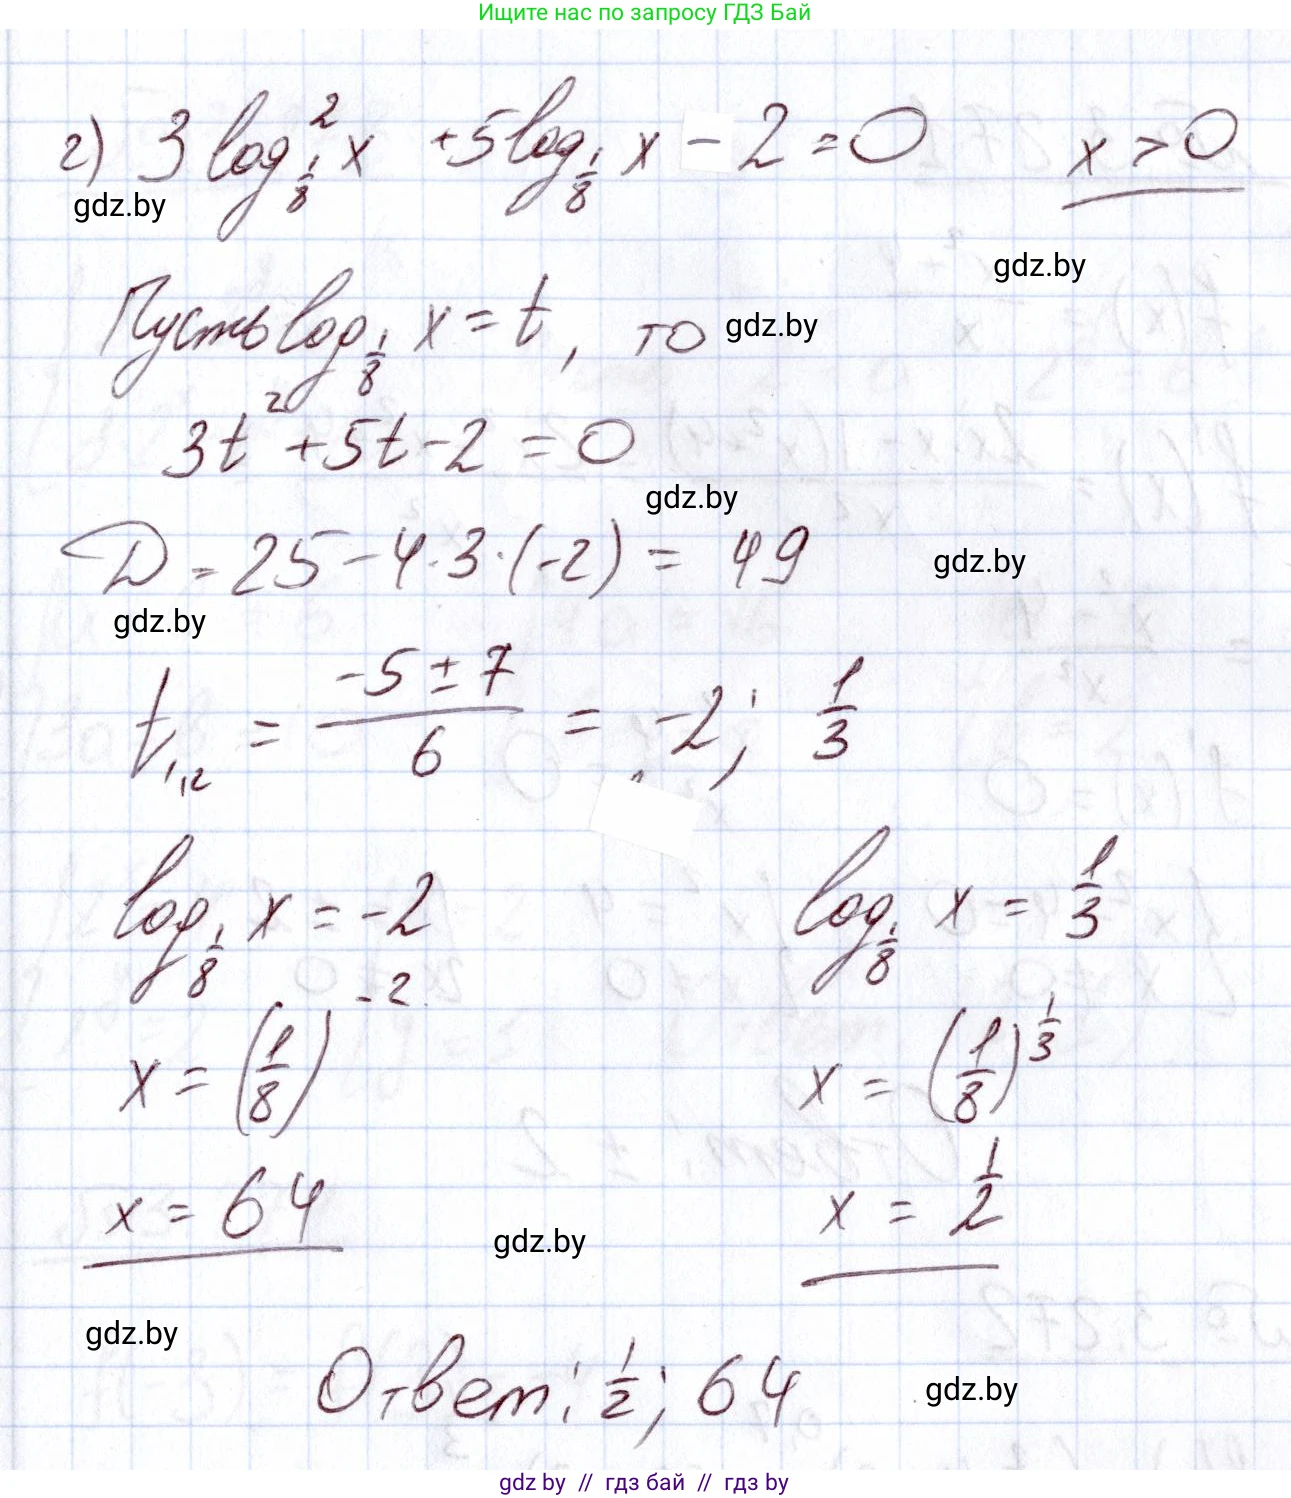 Ищите нас по запросу ГДЗ Бай
г) 3 log²_{1/8} x + 5 log_{1/8} x - 2 = 0    x > 0
gdz.by
gdz.by
Пусть log_{1/8} x = t, то gdz.by
3t² + 5t - 2 = 0
gdz.by
D = 25 - 4·3·(-2) = 49 gdz.by
gdz.by
t_{1,2} = (-5 ± 7)/6 = -2; 1/3
log_{1/8} x = -2    log_{1/8} x = 1/3
x = (1/8)^{-2}    x = (1/8)^{1/3}
x = 64    x = 1/2
gdz.by
gdz.by
Ответ: 1/2; 64 gdz.by
gdz by // гдз бай // гдз by